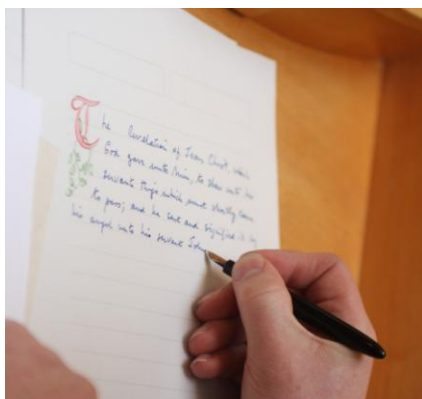 The Revelation of Jesus Christ, which
God gave unto him, to shew unto his
servants things which must shortly come
to pass; and he sent and signified it by
his angel unto his servant John